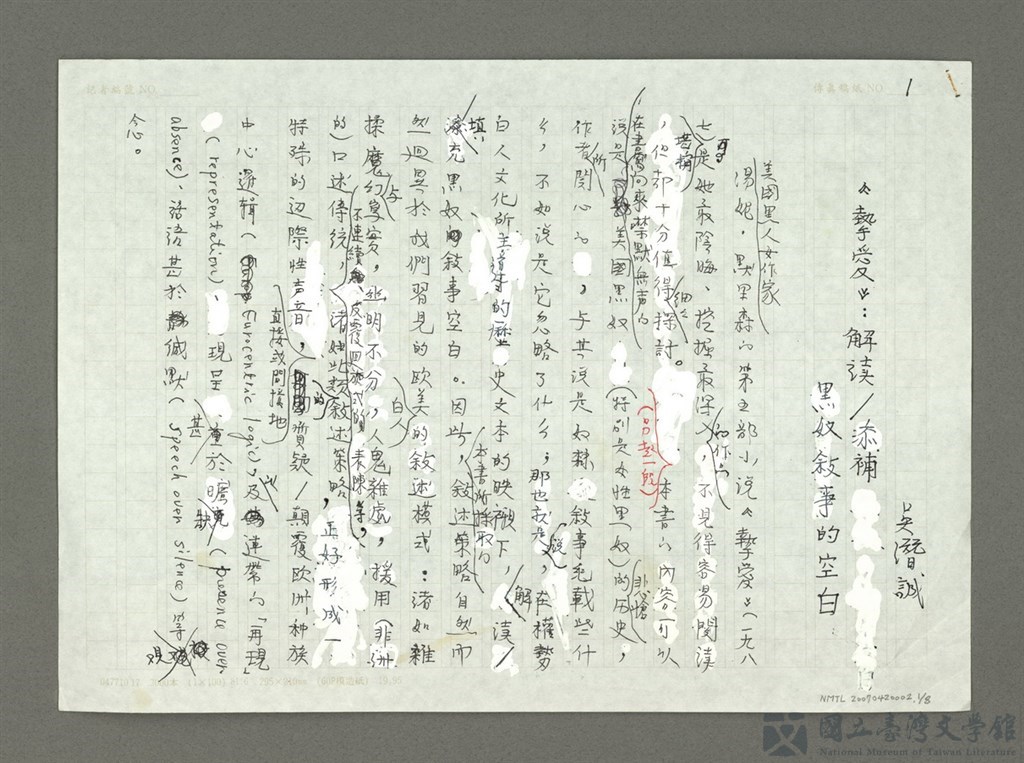 傳真稿紙 NO
1
《摯愛》:解讀/添補
黑奴敘事的空白
吳潛誠
美國黑人女作家
湯妮.默里森的第五部小說《摯愛》(一九八
七)是她最陰晦、挖掘最深入的作品,不見得容易閱讀
,但卻十分值得細細探討。
(另起一段)本書的內容可以
說是在書寫向來禁默無聲的美國黑奴(特別是女性黑奴)的悲愴歷史,
作者所關心的,與其說是奴隸敘事記載些什
麼,不如說是它忽略了什麼,那也就是說,在權勢
白人文化所主導的歷史文本的映襯下,解讀/
填充黑奴敘事空白。因此,本書所採取的敘述策略自然而
然迥異於我們習見的歐美白人的敘述模式:諸如雜
揉魔幻與寫實,幽明不分,人鬼雜處,援用(非洲
的)口述傳統,不連續、反覆迴旋式的表陳等,諸如此類敘述策略,正好形成一
特殊的邊際性声音,直接或間接地質疑/顛覆歐洲種族
中心邏輯(Eurocentric logic),以及連帶的「再現」
(representation)、現呈甚重於瞻缺(presence over
absence)、話語甚於緘默(speech over silence)等觀
念。
NMTL 20070420002.1/8
國立臺灣文學館
National Museum of Taiwan Literature